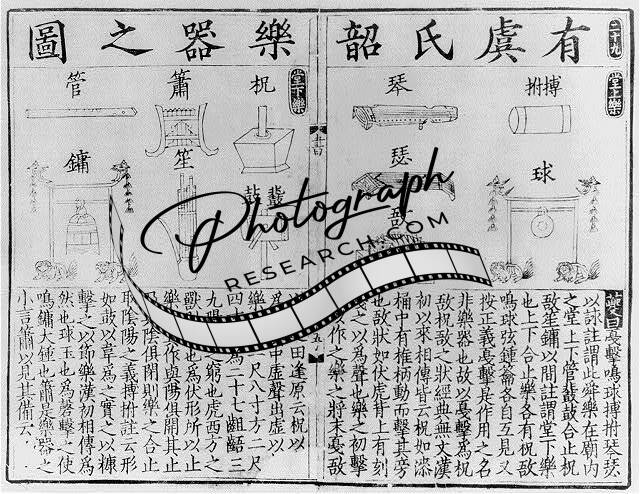 二十九
有虞氏韶樂器之圖
堂上樂
搏拊
琴
球
瑟
敔
堂下樂
柷
簫
管
笙
鏞
鼗
鼓
夔曰戞擊鳴球搏拊琴瑟
以詠註謂此舜樂在廟内
之堂上下管鼗鼓合止柷
敔笙鏞以間註謂堂下樂
也上下合止樂各有柷敔
鳴球弦鍾籥各自互見又
按正義戞擊是作用之名
非樂器也故以戞擊爲柷
敔柷敔之狀經典無文漢
初以來相傳皆云柷如漆
桶中有椎柄動而擊其旁
也敔狀如伏虎背上有刻
之以爲聲也樂之初擊
作之樂之將末戞敔
之田逢原云柷以
爲中虛聲出虛以
樂二尺八寸方二尺
四寸爲二十七齟齬三
九之窮也虎西方之
獸也爲伏形所以止
樂其作與陽俱開其止
陰俱閉則樂之合止
取陰陽之義搏拊註云形
如鼓以韋爲之實之以糠
擊之以節樂漢初相傳爲
然也球玉也爲磬擊之使
鳴鏞大鍾也簫是樂器之
小言簫以見其備云
Photograph
RESEARCH.COM